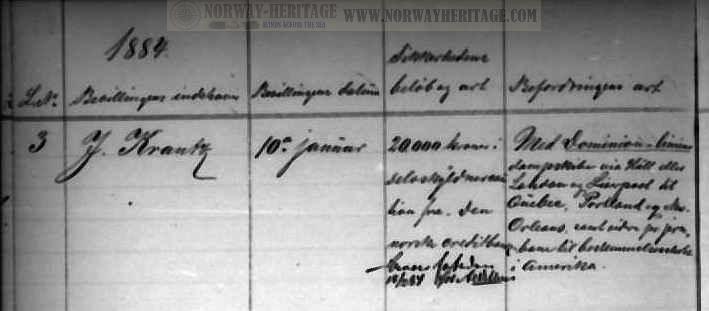 NORWAY-HERITAGE
HANDS ACROSS THE SEA
WWW.NORWAYHERITAGE.COM
1884
L.Nr. Bevillingens indehaver Bevillingens datum Sikkerhedens
beløb og art Befordringens art
3 J. Krantz 10de januar 20.000 kroner i
selvskyldnercau
tion fra den
norske creditban
Med Dominion-liniens
dampskibe via Hull eller
London og Liverpool til
Quebec, Portland og New
Orleans, samt videre pr jern
bane til bestemmelsesstedet
i Amerika.